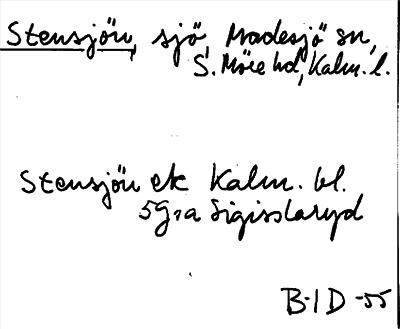 Stensjön, sjö, Madesjö sn,
S. Möre hd, Kalm. l.
Stensjön ek Kalm. bl.
5G:a Sigisslaryd
B-I D -55